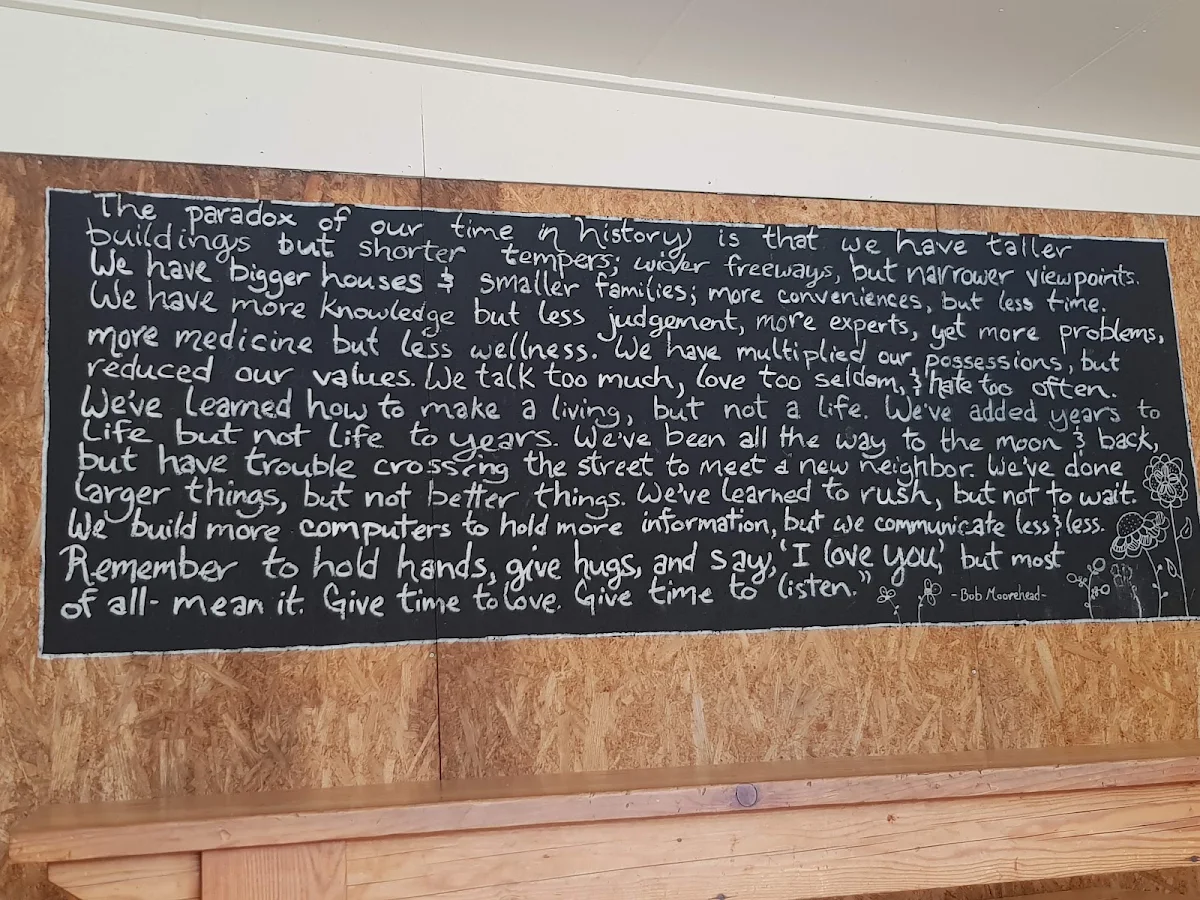 The paradox of our time in history is that we have taller
buildings but shorter tempers; wider freeways, but narrower viewpoints.
We have bigger houses & smaller families; more conveniences, but less time.
We have more knowledge but less judgement, more experts, yet more problems,
more medicine but less wellness. We have multiplied our possessions, but
reduced our values. We talk too much, love too seldom, & hate too often.
We've learned how to make a living, but not a life. We've added years to
life but not life to years. We've been all the way to the moon & back,
but have trouble crossing the street to meet a new neighbor. We've done
larger things, but not better things. We've learned to rush, but not to wait.
We build more computers to hold more information, but we communicate less & less.
Remember to hold hands, give hugs, and say, 'I love you', but most
of all - mean it. Give time to love. Give time to listen."
- Bob Moorehead -